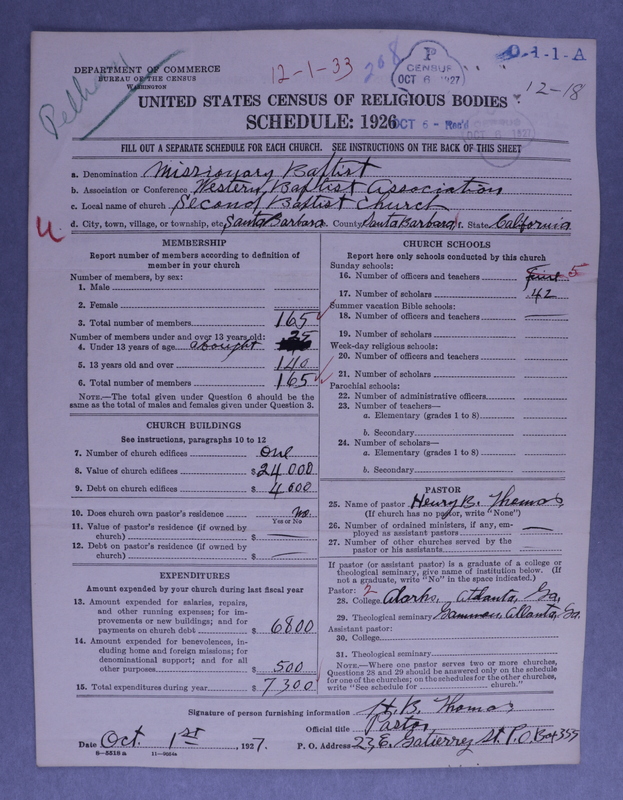 DEPARTMENT OF COMMERCE
BUREAU OF THE CENSUS
WASHINGTON
12-1-33
268
P
CENSUS
OCT 6 1927
0-1-1-A
12-18
UNITED STATES CENSUS OF RELIGIOUS BODIES
SCHEDULE: 1926
OCT 6 - Rec'd
FILL OUT A SEPARATE SCHEDULE FOR EACH CHURCH. SEE INSTRUCTIONS ON THE BACK OF THIS SHEET
a. Denomination Missionary Baptist
b. Association or Conference Western Baptist Association
c. Local name of church Second Baptist Church
d. City, town, village, or township, etc Santa Barbara County Santa Barbara State California
MEMBERSHIP
Report number of members according to definition of
member in your church
Number of members, by sex:
1. Male
2. Female
3. Total number of members 165
Number of members under and over 13 years old:
4. Under 13 years of age about 25
5. 13 years old and over 140
6. Total number of members 165
NOTE.—The total given under Question 6 should be the
same as the total of males and females given under Question 3.
CHURCH BUILDINGS
See instructions, paragraphs 10 to 12
7. Number of church edifices One
8. Value of church edifices $24000
9. Debt on church edifices $4600
10. Does church own pastor's residence no
Yes or No
11. Value of pastor's residence (if owned by
church) $
12. Debt on pastor's residence (if owned by
church) $
EXPENDITURES
Amount expended by your church during last fiscal year
13. Amount expended for salaries, repairs,
and other running expenses; for im-
provements or new buildings; and for
payments on church debt $6800
14. Amount expended for benevolences, in-
cluding home and foreign missions; for
denominational support; and for all
other purposes $500
15. Total expenditures during year $7300
CHURCH SCHOOLS
Report here only schools conducted by this church
Sunday schools:
16. Number of officers and teachers Five 5
17. Number of scholars 42
Summer vacation Bible schools:
18. Number of officers and teachers
19. Number of scholars
Week-day religious schools:
20. Number of officers and teachers
21. Number of scholars
Parochial schools:
22. Number of administrative officers
23. Number of teachers—
a. Elementary (grades 1 to 8)
b. Secondary
24. Number of scholars—
a. Elementary (grades 1 to 8)
b. Secondary
PASTOR
25. Name of pastor Henry B. Thomas
(If church has no pastor, write "None")
26. Number of ordained ministers, if any, em-
ployed as assistant pastors
27. Number of other churches served by the
pastor or his assistants
If pastor (or assistant pastor) is a graduate of a college or
theological seminary, give name of institution below. (If
not a graduate, write "No" in the space indicated.)
Pastor: 2
28. College Clark, Atlanta, Ga.
29. Theological seminary Gammon, Atlanta, Ga.
Assistant pastor:
30. College
31. Theological seminary
NOTE.—Where one pastor serves two or more churches,
Questions 28 and 29 should be answered only on the schedule
for one of the churches; on the schedules for the other churches,
write "See schedule for church."
Signature of person furnishing information H. B. Thomas
Official title Pastor
Date Oct. 1st, 1927. P. O. Address 23, E. Gutierrez St. P.O. Box 355
8-5518a